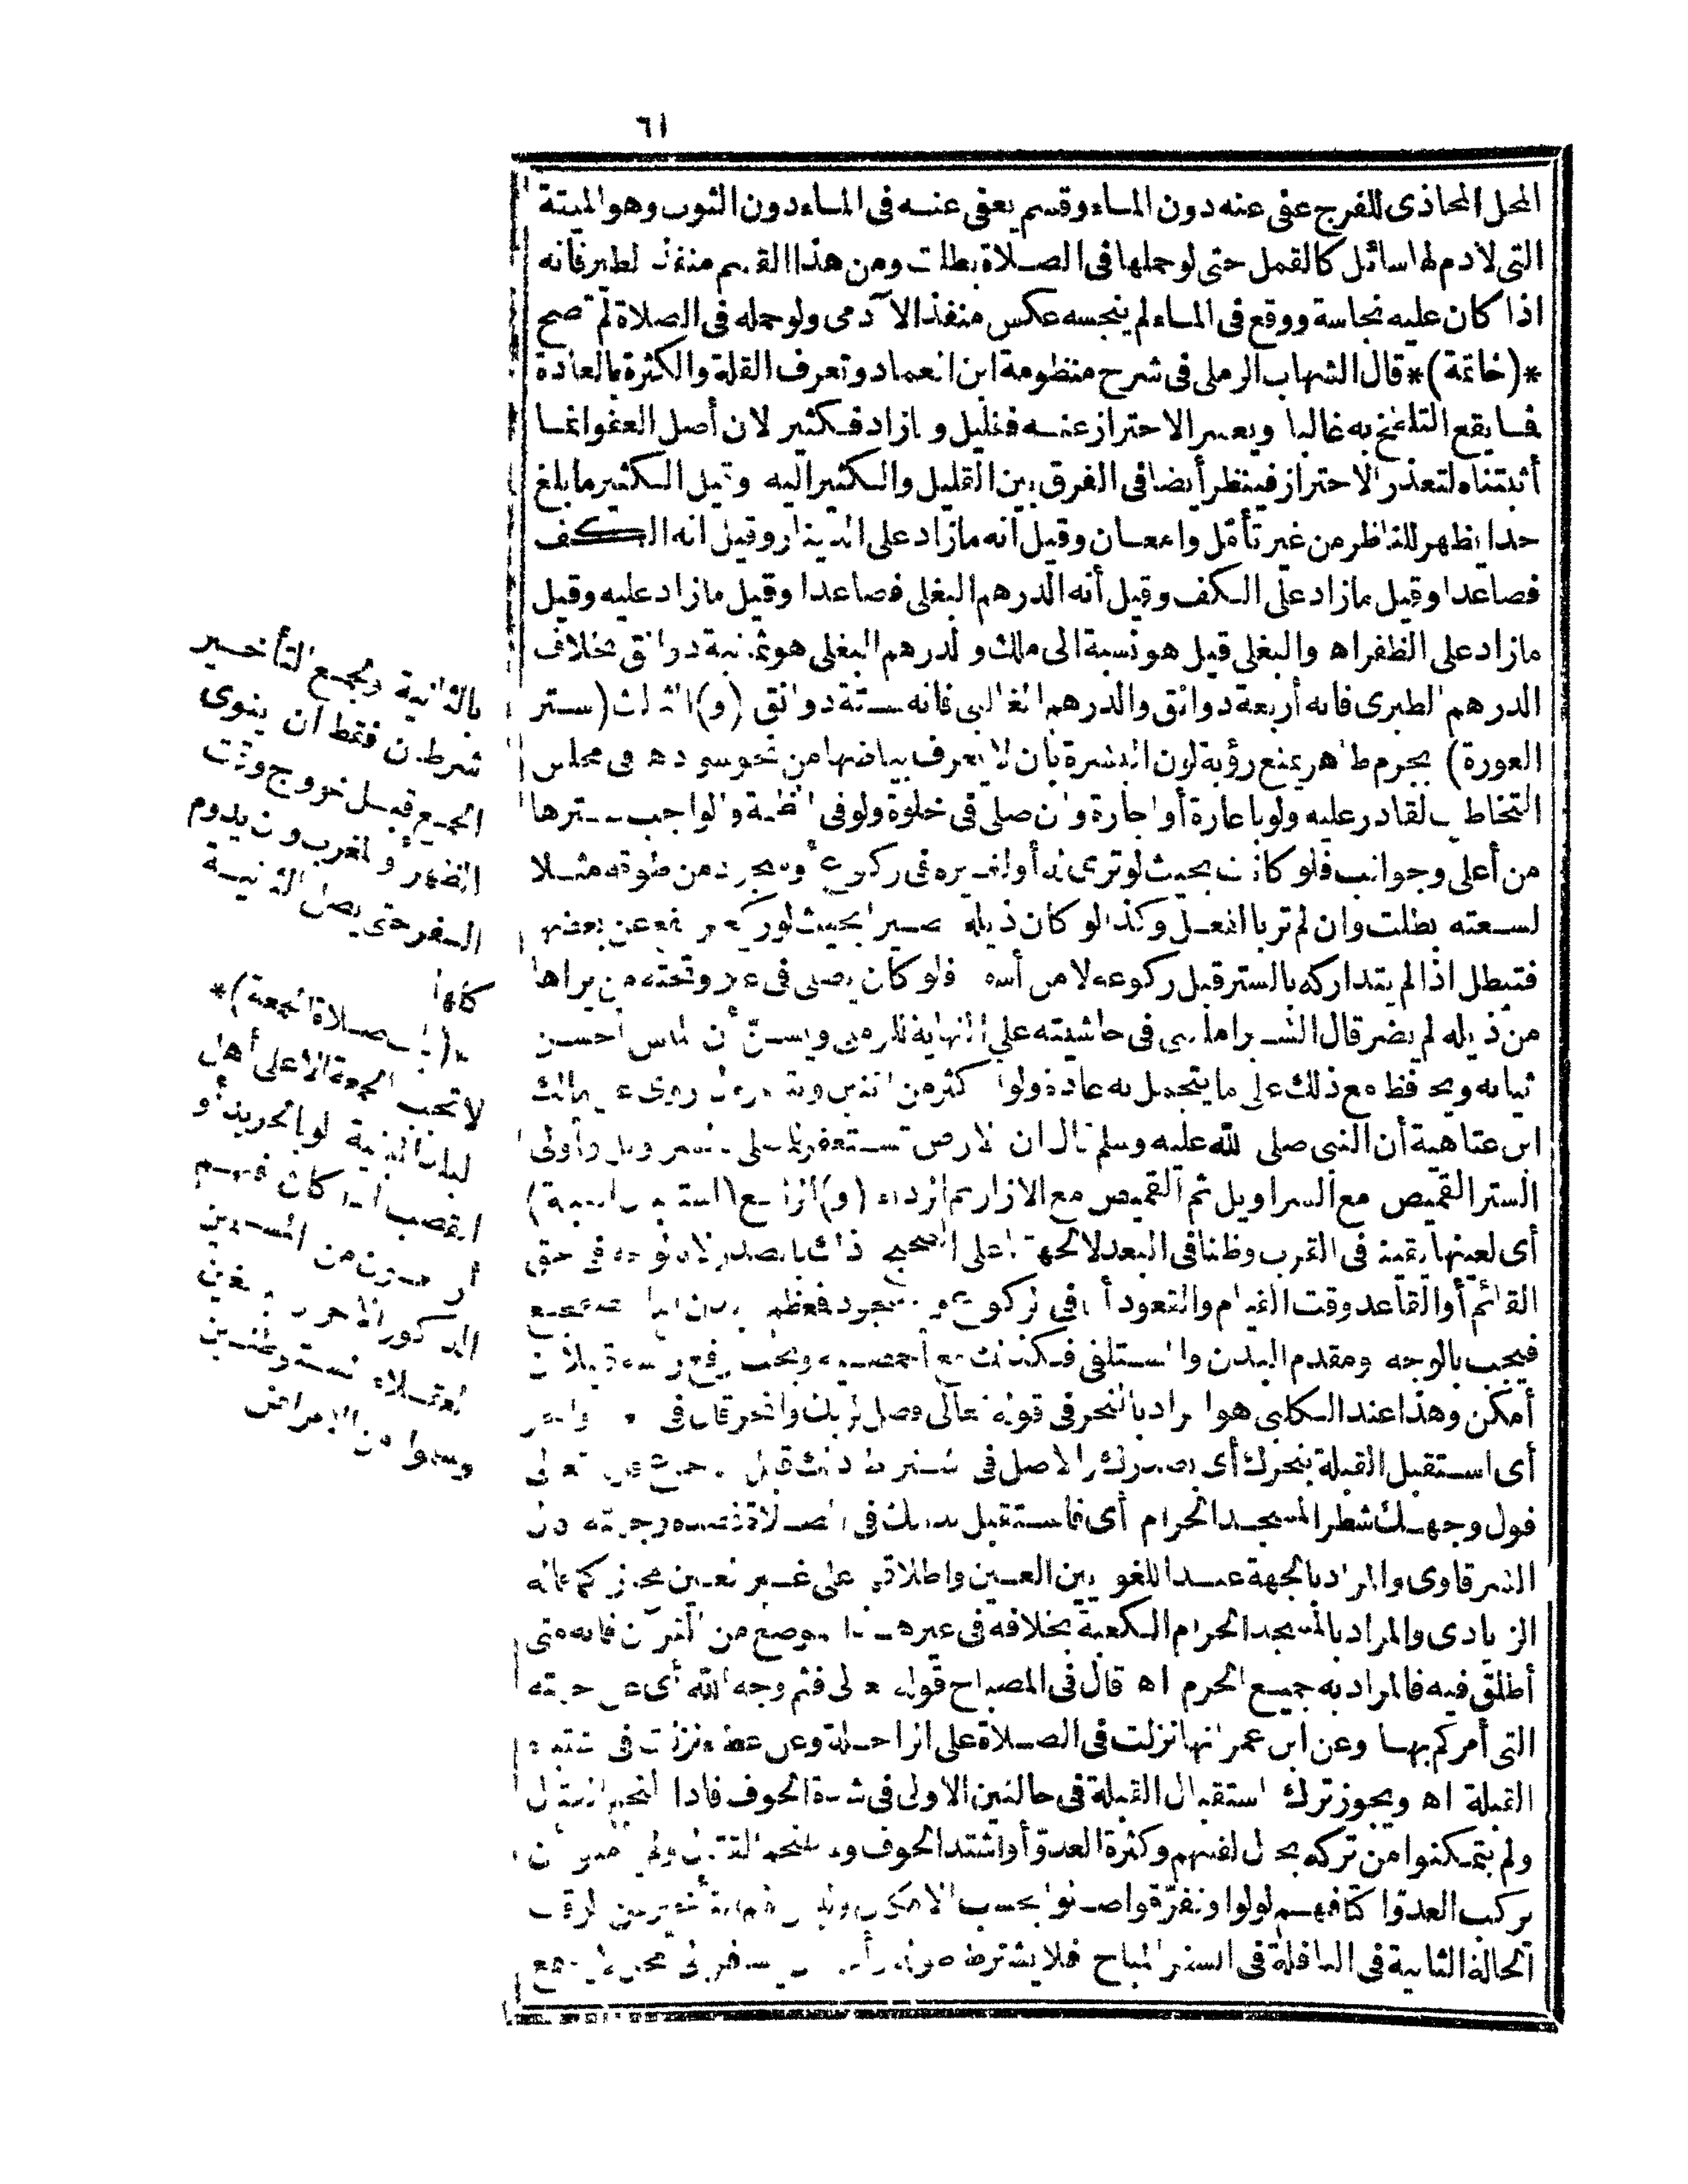 ٦١
المحل المحاذى للفرج عفى عنه دون الماء وقسم يعفى عنه فى الماء دون الثوب وهو الميتة
التى لا دم لها سائل كالقمل حتى لو حملها فى الصلاة بطلت ومن هذا القسم منفذ الطير فانه
اذا كان عليه نجاسة ووقع فى الماء لم ينجسه عكس منفذ الآدمى ولو حمله فى الصلاة لم تصح
*(خاتمة)* قال الشهاب الرملى فى شرح منظومة ابن العماد وتعرف القلة والكثرة بالعادة
فما يقع التلطخ به غالبا ويعسر الاحتراز عنه فقليل وما زاد فكثير لان أصل العفو انما
أثبتناه لتعذر الاحتراز فينظر أيضا فى الفرق بين القليل والكثير اليه وقيل الكثير ما بلغ
حدا يظهر للناظر من غير تأمّل وامعان وقيل انه ما زاد على الدينار وقيل انه الكف
فصاعدا وقيل ما زاد على الكف وقيل أنه الدرهم البغلى فصاعدا وقيل ما زاد عليه وقيل
ما زاد على الظفر اه والبغلى قيل هو نسبة الى ملك والدرهم البغلى هو ثمانية دوانق بخلاف
الدرهم الطبرى فانه أربعة دوانق والدرهم الغالبى فانه ستة دوانق (و) الثالث (ستر
العورة) بجرم طاهر يمنع رؤية لون البشرة بان لا يعرف بياضها من نحو سوادها فى مجلس
التخاطب لقادر عليه ولو باعارة أو اجارة وان صلى فى خلوة ولو فى الظلمة والواجب سترها
من أعلى وجوانب فلو كانت بحيث لو ترى له أو لغيره فى ركوع أو سجود من طوقه مثلا
لسعته بطلت وان لم تر بالفعل وكذا لو كان ذيله قصيرا بحيث لو ركع يرتفع عن بعضها
فتبطل اذا لم يتداركه بالستر قبل ركوعه لا من أسفله فلو كان يصلى فى علو وتحته من يراها
من ذيله لم يضر قال الشبراملسى فى حاشيته على النهاية للرملى ويسنّ أن يلبس أحسن
ثيابه ويحافظ مع ذلك على ما يتجمل به عادة ولو أكثر من اثنين
ابن عتاهية أن النبى صلى الله عليه وسلم قال ان الارض تستغفر للمصلى بالسراويل وأولى
الستر القميص مع السراويل ثم القميص مع الازار ثم الرداء (و) الرابع (استقبال القبلة)
أى لعينها يقينا فى القرب وظنا فى البعد لا لجهتها على الصحيح وذلك بالصدر لا بالوجه فى حق
القائم أو القاعد وقت القيام والقعود أما فى الركوع والسجود فمعظم البدن أما المضطجع
فيجب بالوجه ومقدم البدن والمستلقى فكذلك مع أخمصيه ويجب رفع رأسه قليلا ان
أمكن وهذا عند الكلبى هو المراد بالنحر فى قوله تعالى فصل لربك وانحر قال فى
أى استقبل القبلة بنحرك أى بصدرك والاصل فى اشتراط ذلك قبل الاجماع قوله تعالى
فول وجهك شطر المسجد الحرام أى فاستقبل ببدنك فى الصلاة نفسه وجهته قال
الشرقاوى والمراد بالجهة عند اللغويين العين واطلاقها على غير العين مجاز كما قاله
الزيادى والمراد بالمسجد الحرام الكعبة بخلافه فى غير هذا الموضع من القرآن فانه متى
أطلق فيه فالمراد به جميع الحرم اه قال فى المصباح قوله تعالى فثم وجه الله أى جهته
التى أمركم بها وعن ابن عمر انها نزلت فى الصلاة على الراحلة وعن عطاء نزلت فى اشتباه
القبلة اه ويجوز ترك استقبال القبلة فى حالتين الاولى فى شدة الخوف فاذا التحم القتال
ولم يتمكنوا من تركه بحال لقلتهم وكثرة العدوّ أو اشتد الخوف ولم يلتحم القتال ولم يأمنوا أن
يركب العدوّ أكتافهم لو ولوا وتفرّقوا صلوا بحسب الامكان وليس لهم التأخير عن الوقت
الحالة الثانية فى النافلة فى السفر المباح فلا يشترط
بالثانية ولجمع التأخير
شرطان فقط أن ينوى
الجمع قبل خروج وقت
الظهر أو المغرب وان يدوم
السفر حتى يصلى الثانية
كلها
*(باب صلاة الجمعة)*
لا تجب الجمعة الا على أهل
البلد المبنية لو بالجريد أو
القصب اذا كان فيهم
أربعون من المسلمين
الذكور الاحرار البالغين
العقلاء المستوطنين
وسلموا من الامراض